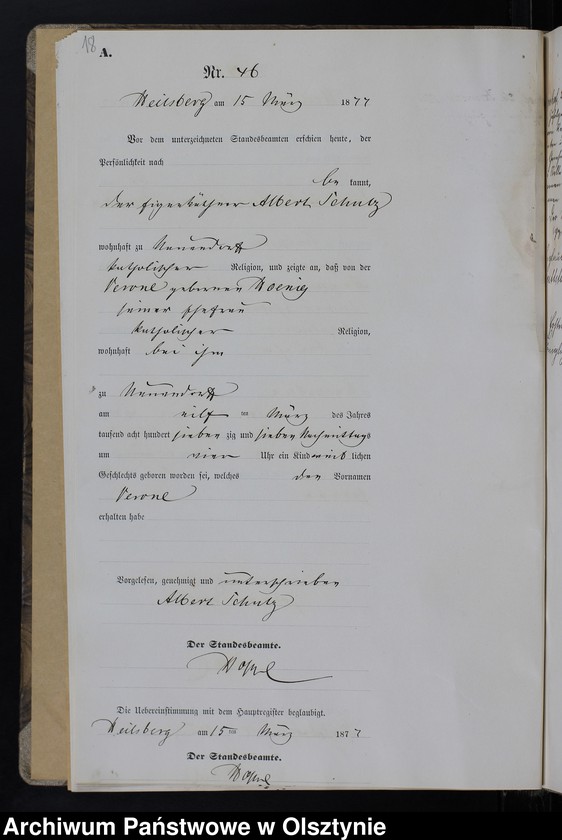 18
A.
Nr. 46
Heilsberg am 15 März 1877
Vor dem unterzeichneten Standesbeamten erschien heute, der
Persönlichkeit nach
be kannt,
der Eigenkäthner Albert Schulz
wohnhaft zu Neuendorff
katholischer Religion, und zeigte an, daß von der
Verone gebornen Koenig
seiner Ehefrau
katholischer Religion,
wohnhaft bei ihm
zu Neuendorff
am eilf ten März des Jahres
tausend acht hundert sieben zig und sieben Nachmittags
um vier Uhr ein Kind weib lichen
Geschlechts geboren worden sei, welches den Vornamen
Verone
erhalten habe
Vorgelesen, genehmigt und unterschrieben
Albert Schulz
Der Standesbeamte.
Die Uebereinstimmung mit dem Hauptregister beglaubigt.
Heilsberg am 15 ten März 1877
Der Standesbeamte.
Archiwum Państwowe w Olsztynie